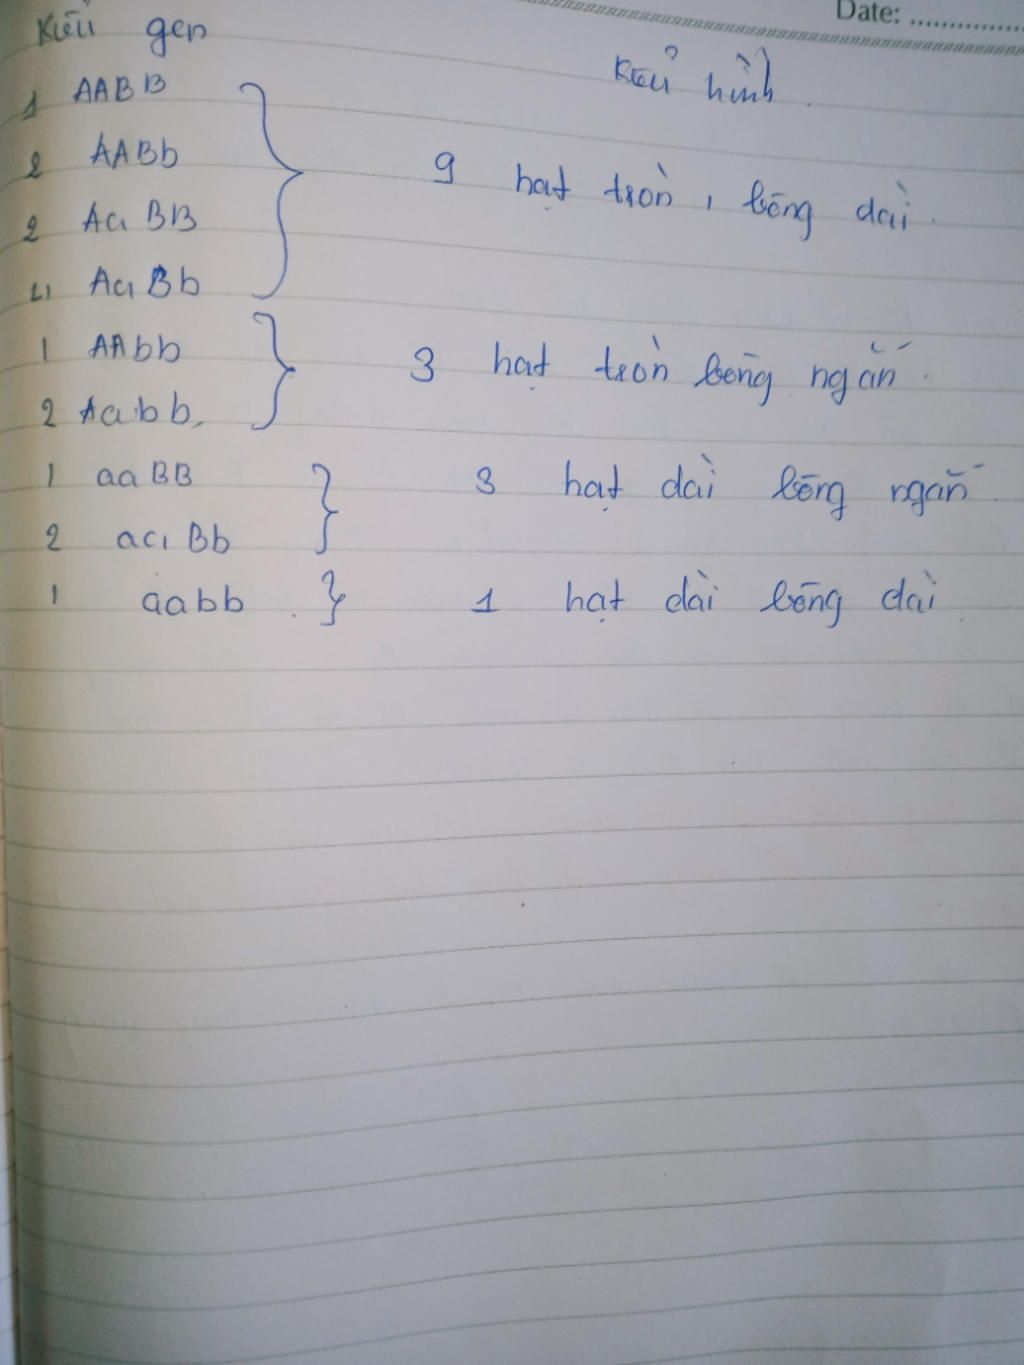 Date: ................
Kiểu gen
Kiểu hình.
1 AABB
2 AABb
2 AaBB
4 AaBb
9 hạt tròn, bông dài.
1 AAbb
2 Aabb.
3 hạt tròn bông ngắn.
1 aaBB
2 aaBb
3 hạt dài bông ngắn.
1 aabb.
1 hạt dài bông dài